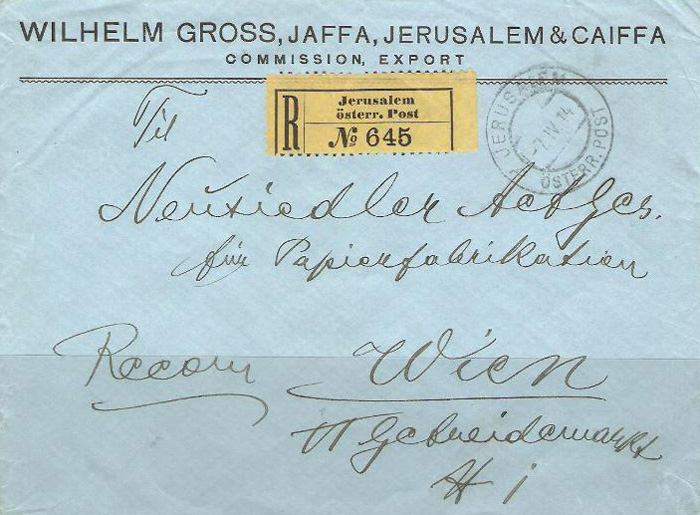 WILHELM GROSS, JAFFA, JERUSALEM & CAIFFA
COMMISSION, EXPORT
R
Jerusalem
österr. Post
№ 645
JERUSALEM
7.IV.14
ÖSTERR. POST
Tit
Neusiedler ActGes.
für Papierfabrikation
Recom Wien
Getreidemarkt